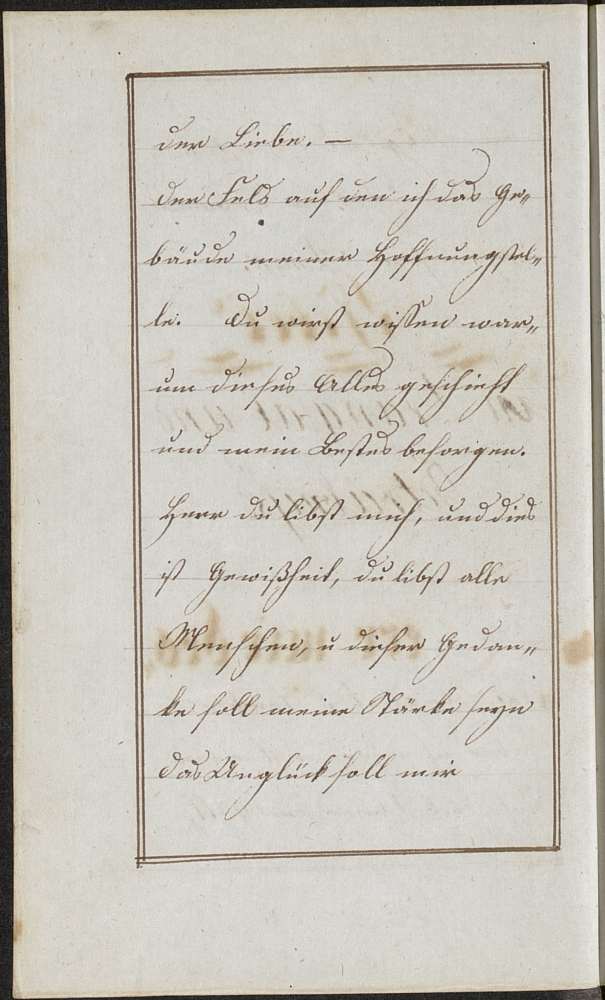 der Liebe. —
der Fels auf den ich das Ge„
bäude meiner Hoffnung stel„
le. Du wirst wissen war„
um dieses Alles geschieht
und mein Bestes besorgen.
Herr du libst mich, und dies
ist Gewißheit, du libst alle
Menschen, u dieser Gedan„
ke soll meine Stärke seyn
das Unglück soll mir